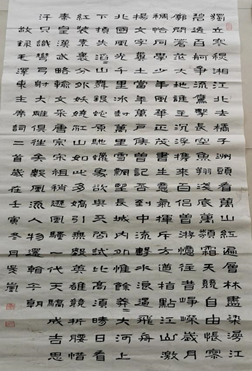 獨立寒秋湘江北去橘子洲頭看萬山紅遍層林盡染漫江
碧透百舸爭流鷹擊長空魚翔淺底萬類霜天競自由悵寥
廓問蒼茫大地誰主沉浮攜來百侶曾遊憶往昔崢嶸歲月
稠恰同學少年風華正茂書生意氣揮斥方遒指點江山激
揚文字糞土當年萬戶侯曾記否到中流擊水浪遏飛舟
北國風光千里冰封萬里雪飄望長城內外惟餘莽莽大河上
下頓失滔滔山舞銀蛇原馳蠟象欲與天公試比高須晴日看
紅裝素裹分外妖嬈江山如此多嬌引無數英雄競折腰惜
秦皇漢武略輸文采唐宗宋祖稍遜風騷一代天驕成吉思
汗只識彎弓射大雕俱往矣數風流人物還看今朝
毛澤東主席詩詞二首癸